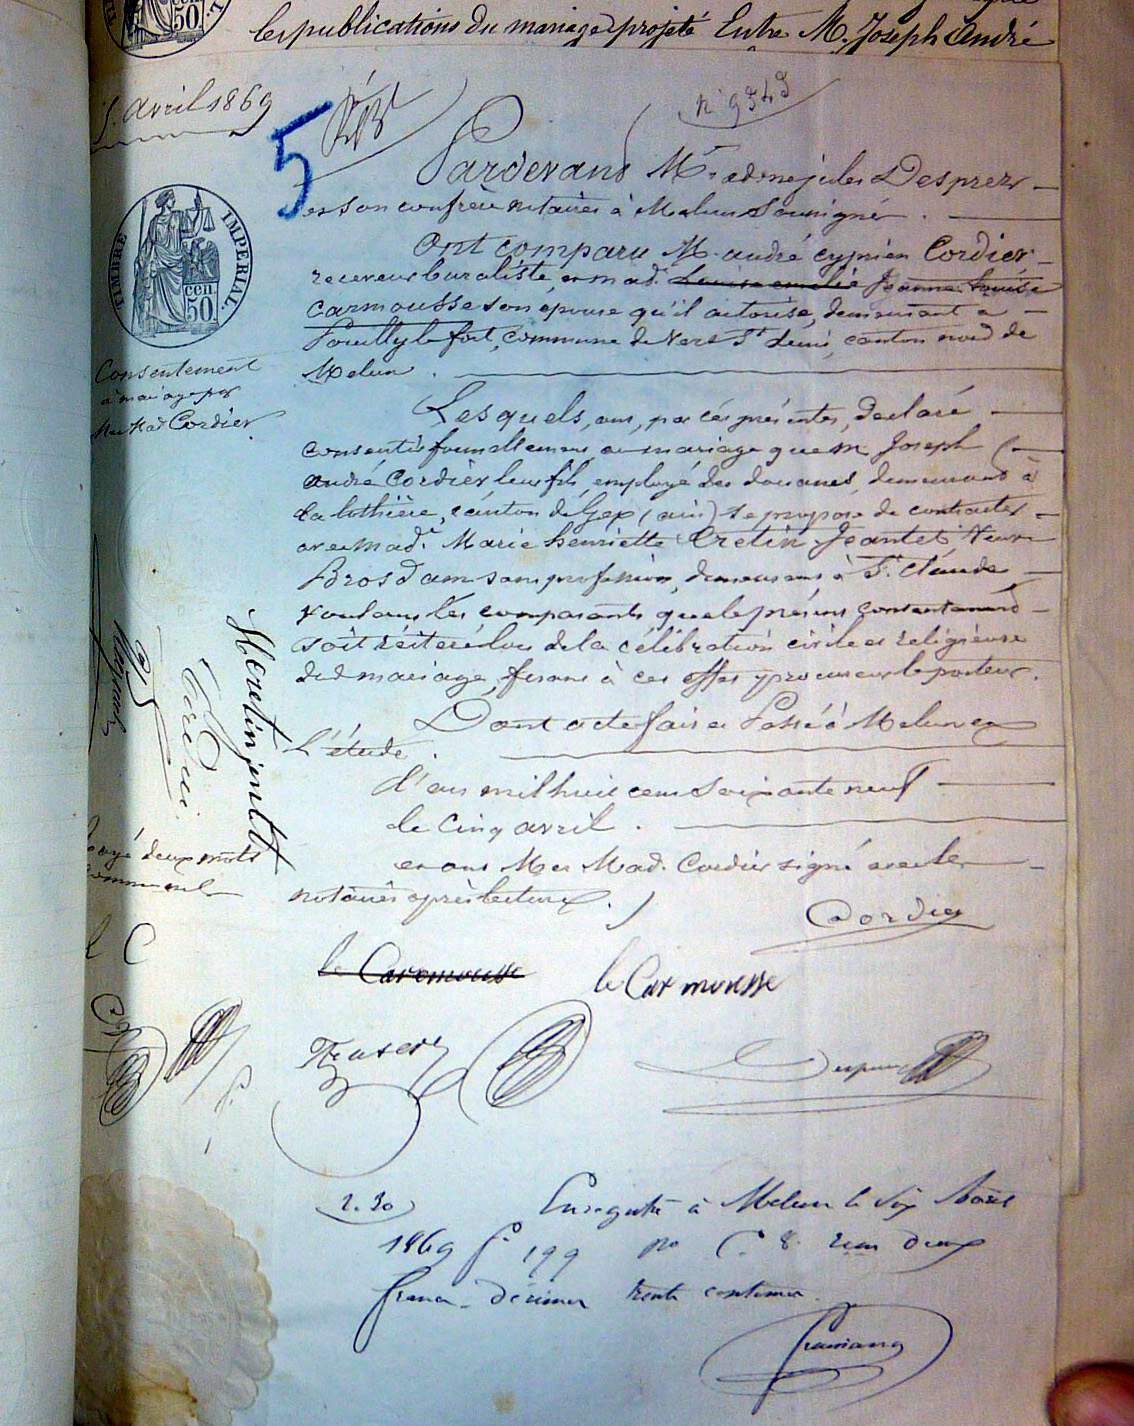 les publications du mariage projeté Entre M. Joseph André
5. avril 1869
n° 9545
5
Pardevant Me edme jules Desprez
et son confrère notaires à Melun Soussignés.
Ont comparu M. andré cyprien Cordier
receveur buraliste, et mad. Louise emelie Jeanne Louise
Carmousse son épouse qu'il autorise, demeurant a
Pouilly le fort, commune de Vert St Denis, canton nord de
Melun.
TIMBRE IMPERIAL.
50 cen
Consentement
a mariage par
M et Mad Cordier
Lesquels, ont, par ces présentes, declaré
consentir formellement au mariage que M. Joseph
andré Cordier, leur fils, employé des douanes, demeurant à
la , canton de Gex (ain) se propose de contracter
avec Made. Marie henriette Cretin Jeantet, Veuve
Brosd am sans profession, demeurant à St. Claude
voulant les comparants que le présent consentement
soit réitéré lors de la célébration civile et religieuse
dud mariage, faisant à cet effet procureur le porteur.
Dont acte fait et Passé à Melun en
l'étude.
L'an mil huit cent soixante neuf
le cinq avril.
et ont M et Mad. Cordier signé avec les
notaires après lecture.
Cordier
le Carmousse
le Carmousse
Desprez
rayé deux mots
comme nuls
l C
2.30
Enregistré à Melun le six Avril
1869 f° 199 Ro C. 8. reçu deux
francs Décimes trente centimes.